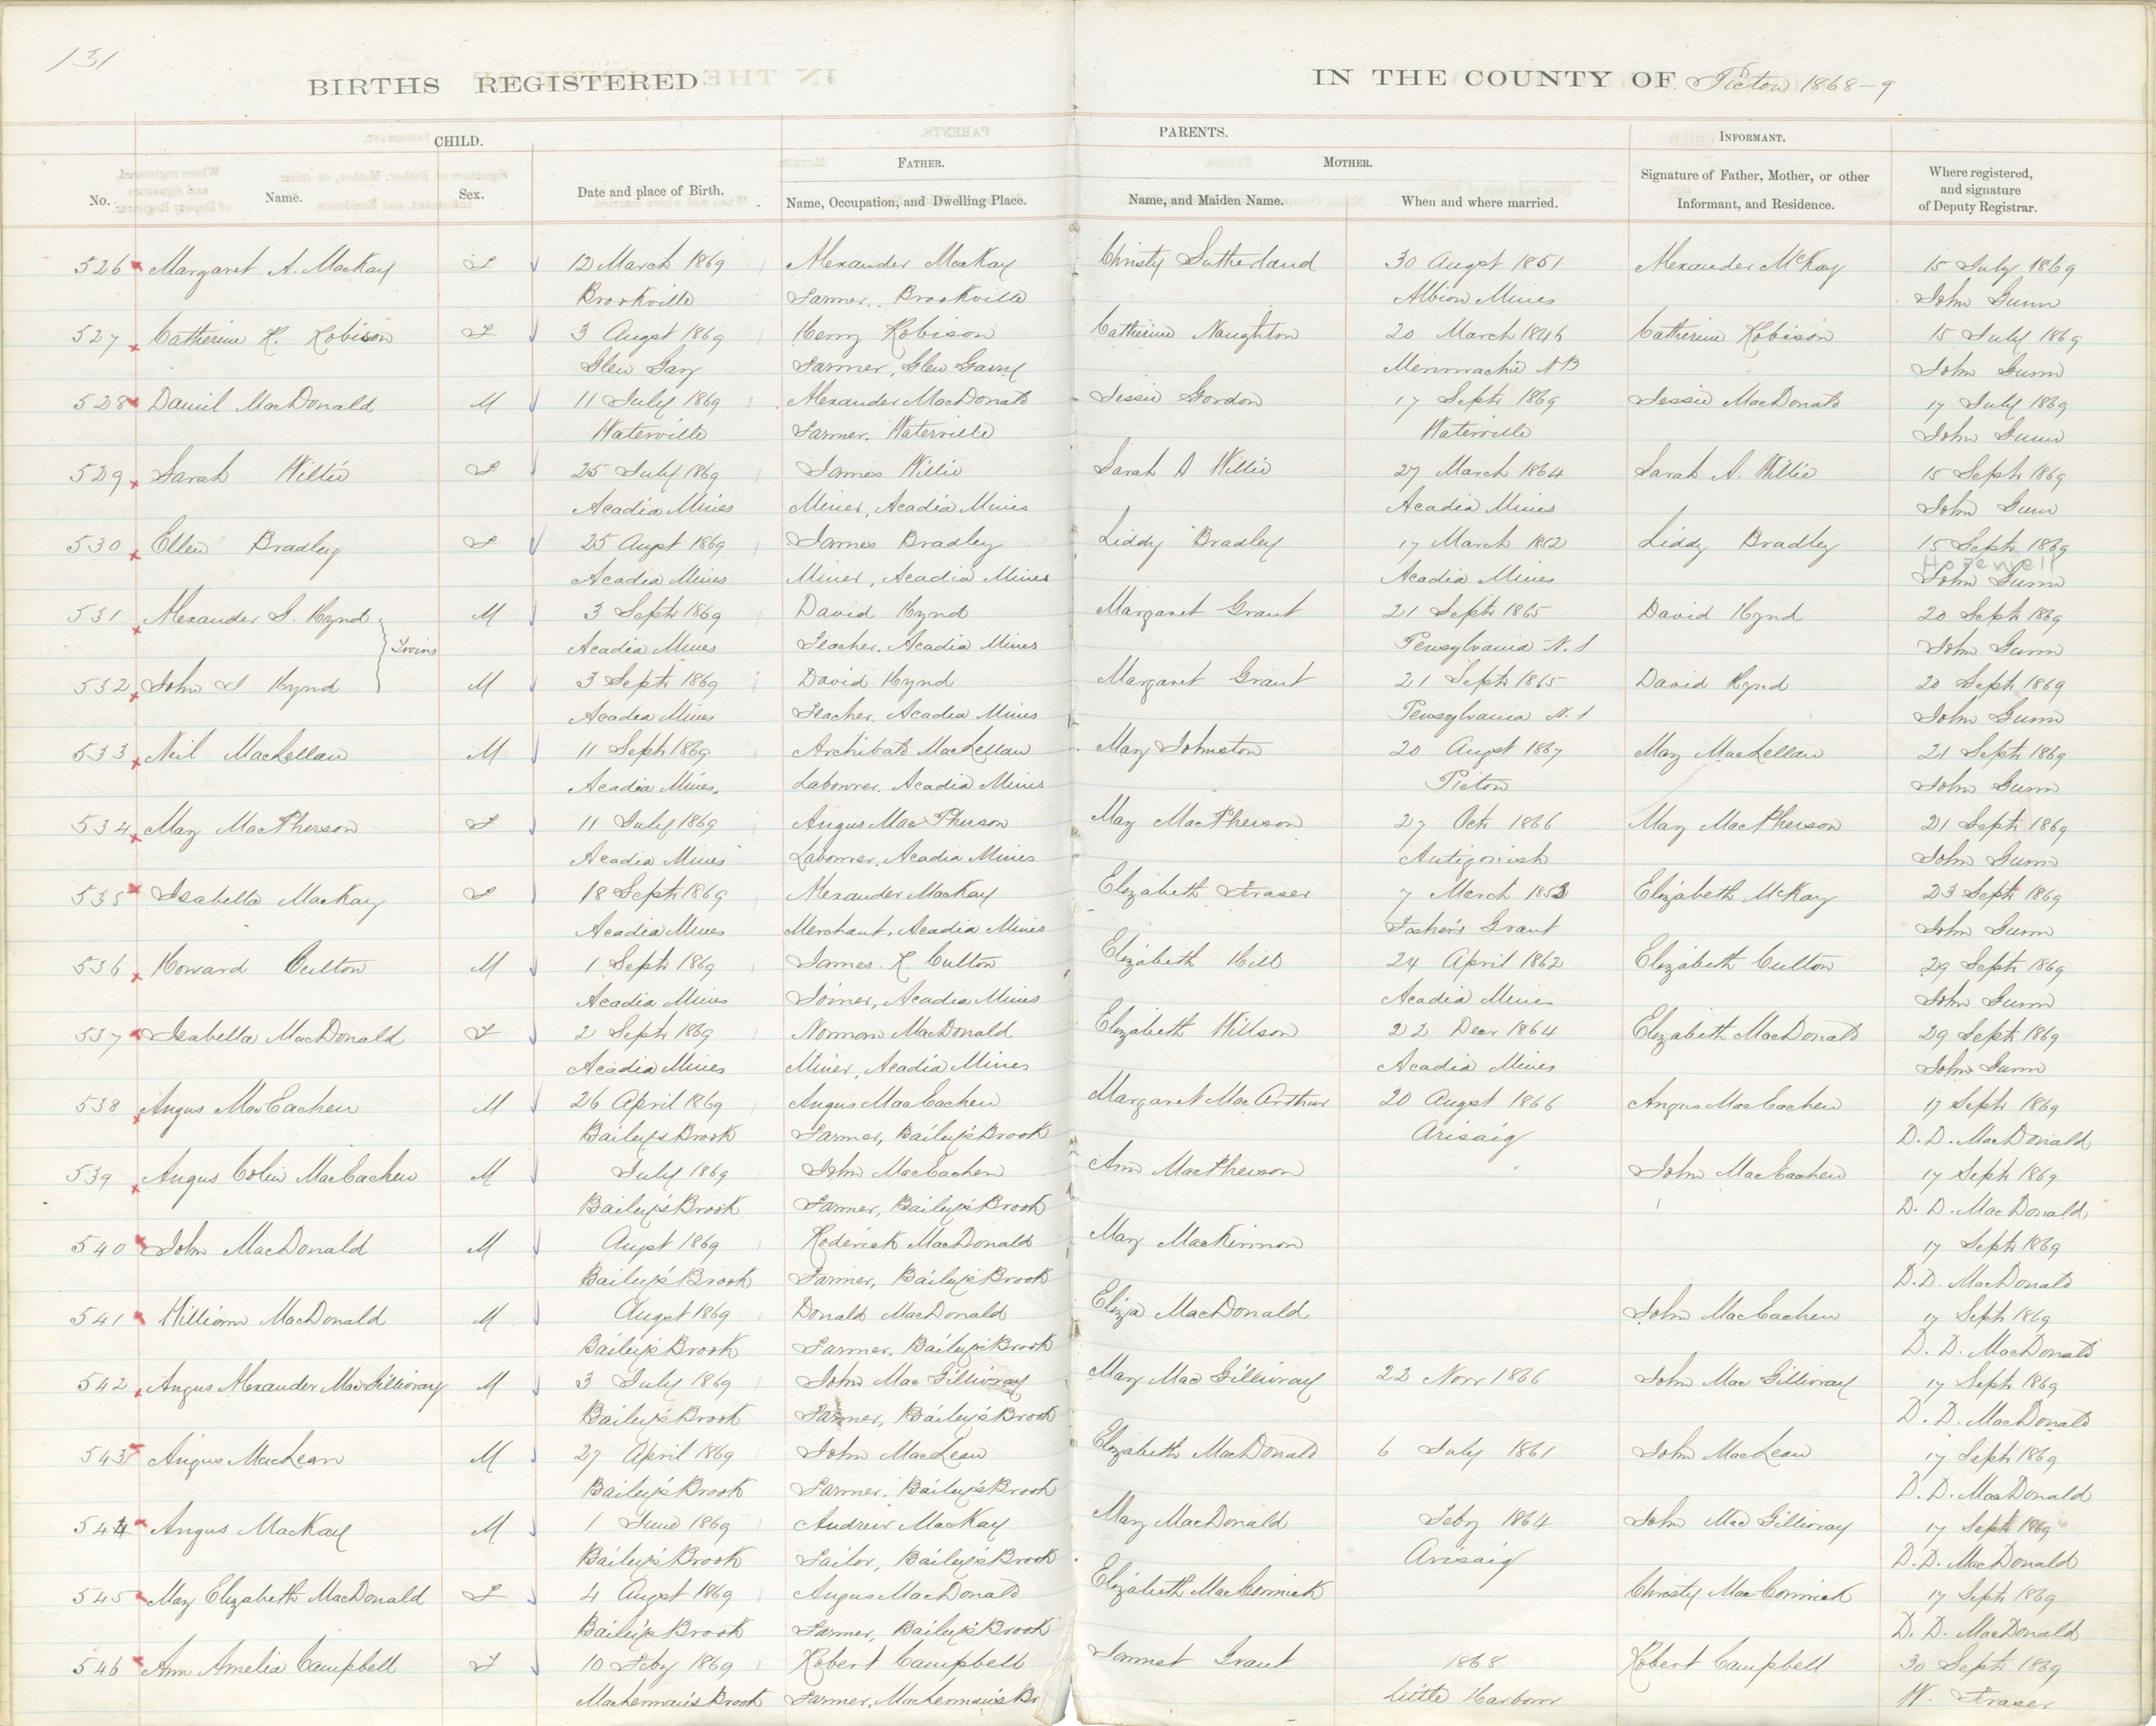 131
BIRTHS REGISTERED IN THE COUNTY OF Picton 1868-9
CHILD. PARENTS. INFORMANT.
FATHER. MOTHER.
No. Name. Sex. Date and place of Birth. Name, Occupation, and Dwelling Place. Name, and Maiden Name. When and where married. Signature of Father, Mother, or other Informant, and Residence. Where registered, and signature of Deputy Registrar.
526 Margaret A. MacKay F 12 March 1869 Alexander MacKay Christy Sutherland 30 Augst 1851 Alexander McKay 15 July 1869
Brookville Farmer. Brookville Albion Mines John Gunn
527 Catherine R. Robison F 3 Augst 1869 Henry Robison Catherine Naughton 20 March 1846 Catherine Robison 15 July 1869
Glen Gary Farmer, Glen Garry Merimachie NB John Gunn
528 Daniel MacDonald M 11 July 1869 Alexander MacDonald Jessie Gordon 17 Septr 1869 Jessie MacDonald 17 July 1869
Waterville Farmer. Waterville Waterville John Gunn
529 Sarah Willie F 25 July 1869 James Willie Sarah A Willie 27 March 1864 Sarah A. Willie 15 Septr 1869
Acadia Mines Miner, Acadia Mines Acadia Mines John Gunn
530 Ellen Bradley F 25 Augst 1869 James Bradley Liddy Bradley 17 March 1852 Liddy Bradley 15 Septr 1869
Hopewell
Acadia Mines Miner, Acadia Mines Acadia Mines John Gunn
531 Alexander G. Hynd M 3 Septr 1869 David Hynd Margaret Grant 21 Septr 1865 David Hynd 20 Septr 1869
Twins Acadia Mines Teacher. Acadia Mines Pensylvania N.S John Gunn
532 John I Hynd M 3 Septr 1869 David Hynd Margaret Grant 21 Septr 1865 David Hynd 20 Septr 1869
Acadia Mines Teacher. Acadia Mines Pensylvania N.S John Gunn
533 Neil MacLellan M 11 Septr 1869 Archibald MacLellan Mary Johnston 20 Augst 1867 Mary MacLellan 21 Septr 1869
Acadia Mines. Labourer. Acadia Mines Picton John Gunn
534 Mary MacPherson F 11 July 1869 Angus MacPherson Mary MacPherson 27 Octr 1866 Mary MacPherson 21 Septr 1869
Acadia Mines Labourer, Acadia Mines Antigonish John Gunn
535 Isabella MacKay F 18 Septr 1869 Alexander MacKay Elizabeth Fraser 7 March 1853 Elizabeth McKay 23 Septr 1869
Acadia Mines Merchant, Acadia Mines Fisher's Grant John Gunn
536 Howard Culton M 1 Septr 1869 James R Culton Elizabeth Hill 24 April 1862 Elizabeth Culton 29 Septr 1869
Acadia Mines Joiner, Acadia Mines Acadia Mines John Gunn
537 Isabella MacDonald F 2 Septr 1869 Norman MacDonald Elizabeth Willson 22 Decr 1864 Elizabeth MacDonald 29 Septr 1869
Acadia Mines Miner, Acadia Mines Acadia Mines John Gunn
538 Angus MacEachen M 26 April 1869 Angus MacEachen Margaret MacArthur 20 Augst 1866 Angus MacEachen 17 Septr 1869
Bailey's Brook Farmer, Bailey's Brook Arisaig D. D. MacDonald
539 Angus Colin MacEachen M July 1869 John MacEachen Ann MacPherson John MacEachen 17 Septr 1869
Bailey's Brook Farmer, Bailey's Brook D. D. MacDonald
540 John MacDonald M Augst 1869 Roderick MacDonald Mary MacKinnon 17 Septr 1869
Bailey's Brook Farmer, Bailey's Brook D.D. MacDonald
541 William MacDonald M Augst 1869 Donald MacDonald Eliza MacDonald John MacEachen 17 Septr 1869
Bailey's Brook Farmer. Bailey's Brook D. D. MacDonald
542 Angus Alexander MacGillivray M 3 July 1869 John MacGillivray Mary MacGillivray 22 Novr 1866 John MacGillivray 17 Septr 1869
Bailey's Brook Farmer, Bailey's Brook D. D. MacDonald
543 Angus MacLean M 27 April 1869 John MacLean Elizabeth MacDonald 6 July 1861 John MacLean 17 Septr 1869
Bailey's Brook Farmer. Bailey's Brook D. D. MacDonald
544 Angus MacKay M 1 June 1869 Andrew MacKay Mary MacDonald Feby 1864 John MacGillivray 17 Septr 1869
Bailey's Brook Tailor, Bailey's Brook Arisaig D. D. MacDonald
545 Mary Elizabeth MacDonald F 4 Augst 1869 Angus MacDonald Elizabeth MacCormick Christy MacCormick 17 Septr 1869
Bailey's Brook Farmer, Bailey's Brook D. D. MacDonald
546 Ann Amelia Campbell F 10 Feby 1869 Robert Campbell Jannet Grant 1868 Robert Campbell 30 Septr 1869
MacLennan's Brook Farmer, MacLennan's Br Little Harbour W. Fraser